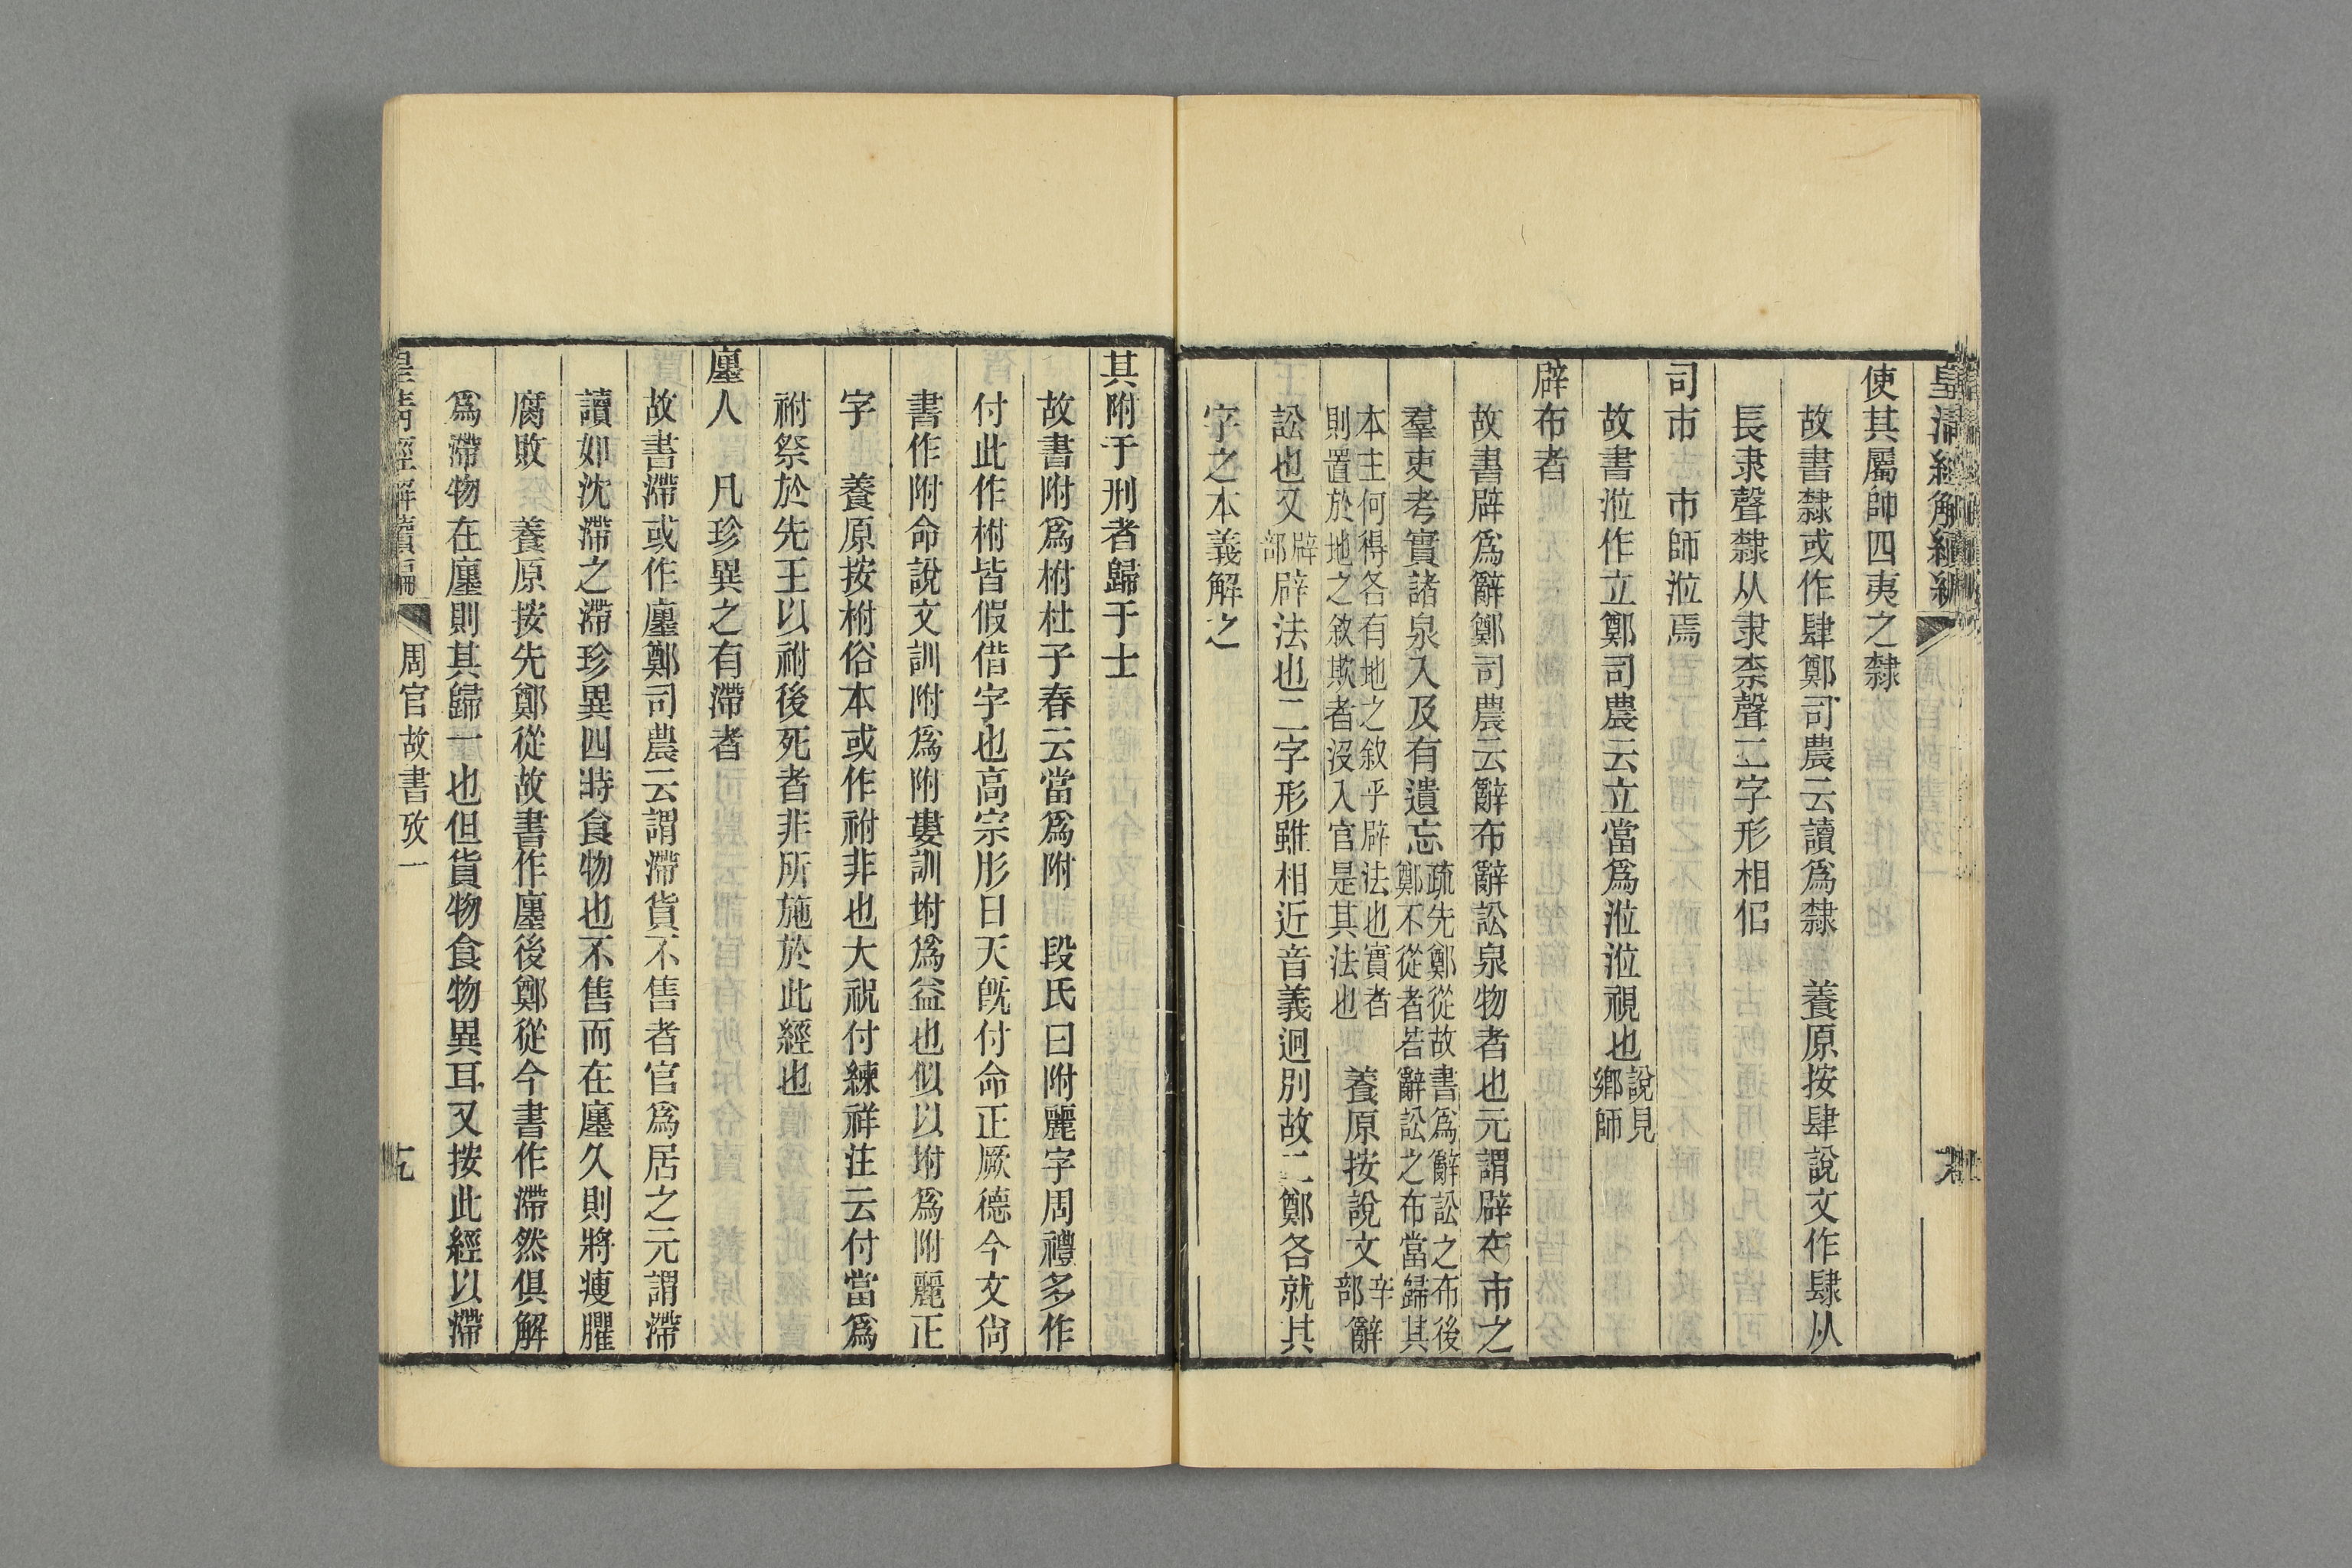 皇淸經解續編
使其屬帥四夷之隸
故書隸或作肆鄭司農云讀爲隸　養原按肆說文作肆从
長隶聲隸从隶柰聲二字形相侣
司市　市師涖焉
故書涖作立鄭司農云立當爲涖涖視也說見鄉師
辟布者
故書辟爲辭鄭司農云辭布辭訟泉物者也元謂辟布市之
羣吏考實諸泉入及有遺忘疏先鄭從故書爲辭訟之布後鄭不從者若辭訟之布當歸其
本主何得各有地之敘乎辟法也實者則置於地之敘欺者沒入官是其法也　養原按說文辛部辭
訟也又辟部辟法也二字形雖相近音義迥別故二鄭各就其
字之本義解之
其附于刑者歸于士
故書附爲柎杜子春云當爲附　段氏曰附麗字周禮多作
付此作柎皆假借字也高宗肜日天旣付命正厥德今文尙
書作附命說文訓附爲附婁訓坿爲益也似以坿爲附麗正
字　養原按柎俗本或作祔非也大祝付練祥注云付當爲
祔祭於先王以祔後死者非所施於此經也
廛人　凡珍異之有滯者
故書滯或作廛鄭司農云謂滯貨不售者官爲居之元謂滯
讀如沈滯之滯珍異四時食物也不售而在廛久則將瘦臞
腐敗　養原按先鄭從故書作廛後鄭從今書作滯然俱解
爲滯物在廛則其歸一也但貨物食物異耳又按此經以滯
皇淸經解續編　周官故書攷一